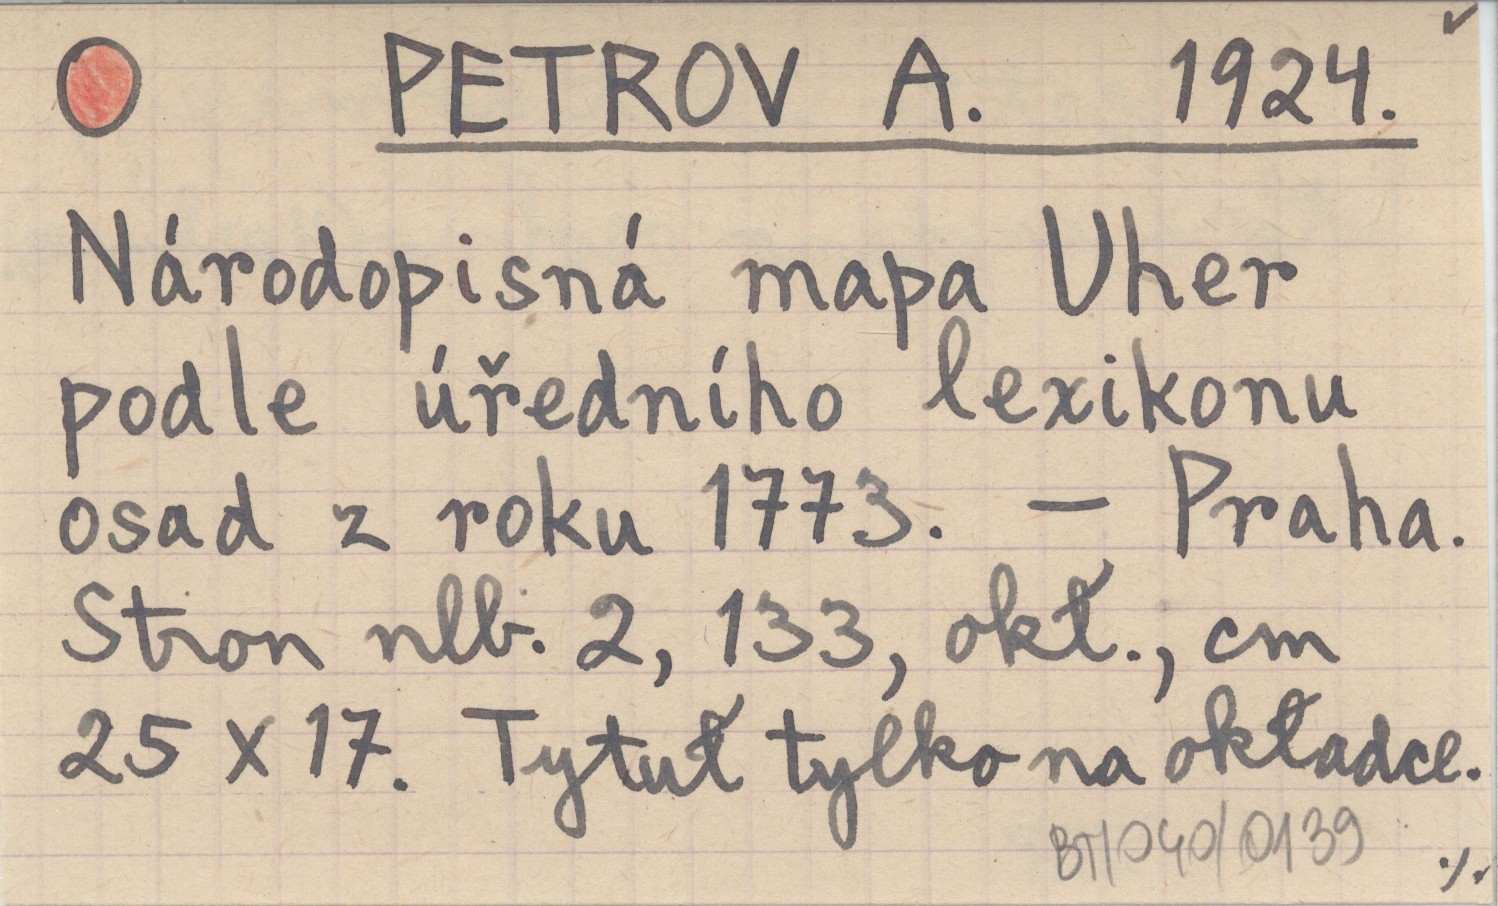 PETROV A. 1924.
Národopisná mapa Uher
podle úředního lexikonu
osad z roku 1773. – Praha.
Stron nlb. 2, 133, okł., cm
25 x 17. Tytuł tylko na okładce.
BT/040/0139
./.